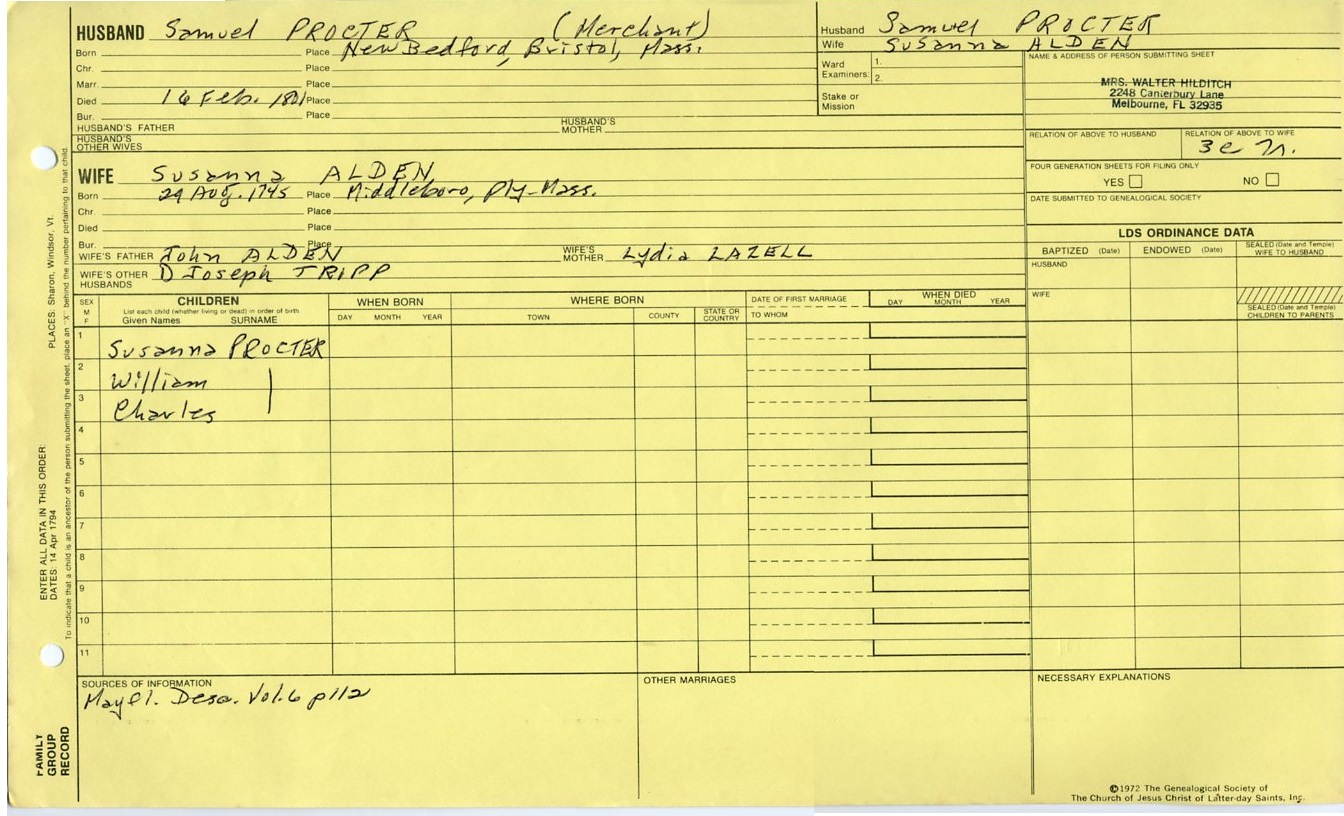 HUSBAND Samuel PROCTER (Merchant)
Born Place New Bedford, Bristol, Mass.
Chr. Place
Marr. Place
Died 16 Feb. 1801 Place
Bur. Place
HUSBAND'S FATHER HUSBAND'S MOTHER
HUSBAND'S OTHER WIVES
Husband Samuel PROCTER
Wife Susanna ALDEN
Ward Examiners: 1.
2.
Stake or Mission
NAME & ADDRESS OF PERSON SUBMITTING SHEET
MRS. WALTER HILDITCH
2248 Canterbury Lane
Melbourne, FL 32935
RELATION OF ABOVE TO HUSBAND RELATION OF ABOVE TO WIFE
3 c
FOUR GENERATION SHEETS FOR FILING ONLY
YES NO
DATE SUBMITTED TO GENEALOGICAL SOCIETY
WIFE Susanna ALDEN
Born 29 Aug. 1745 Place Middleboro, Ply-Mass.
Chr. Place
Died Place
Bur. Place
WIFE'S FATHER John ALDEN WIFE'S MOTHER Lydia LAZELL
WIFE'S OTHER HUSBANDS Joseph TRIPP
LDS ORDINANCE DATA
BAPTIZED (Date) ENDOWED (Date) SEALED (Date and Temple) WIFE TO HUSBAND
HUSBAND
WIFE
SEALED (Date and Temple) CHILDREN TO PARENTS
SEX M F CHILDREN
List each child (whether living or dead) in order of birth
Given Names SURNAME
WHEN BORN
DAY MONTH YEAR
WHERE BORN
TOWN COUNTY STATE OR COUNTRY
DATE OF FIRST MARRIAGE
TO WHOM
WHEN DIED
DAY MONTH YEAR
1 Susanna PROCTER
2 William
3 Charles
4
5
6
7
8
9
10
11
SOURCES OF INFORMATION
Mayfl. Desc. Vol. 6 p112
OTHER MARRIAGES
NECESSARY EXPLANATIONS
©1972 The Genealogical Society of
The Church of Jesus Christ of Latter-day Saints, Inc.
FAMILY GROUP RECORD
ENTER ALL DATA IN THIS ORDER:
DATES: 14 Apr 1794
PLACES: Sharon, Windsor, Vt.
To indicate that a child is an ancestor of the person submitting the sheet, place an "X" behind the number pertaining to that child.